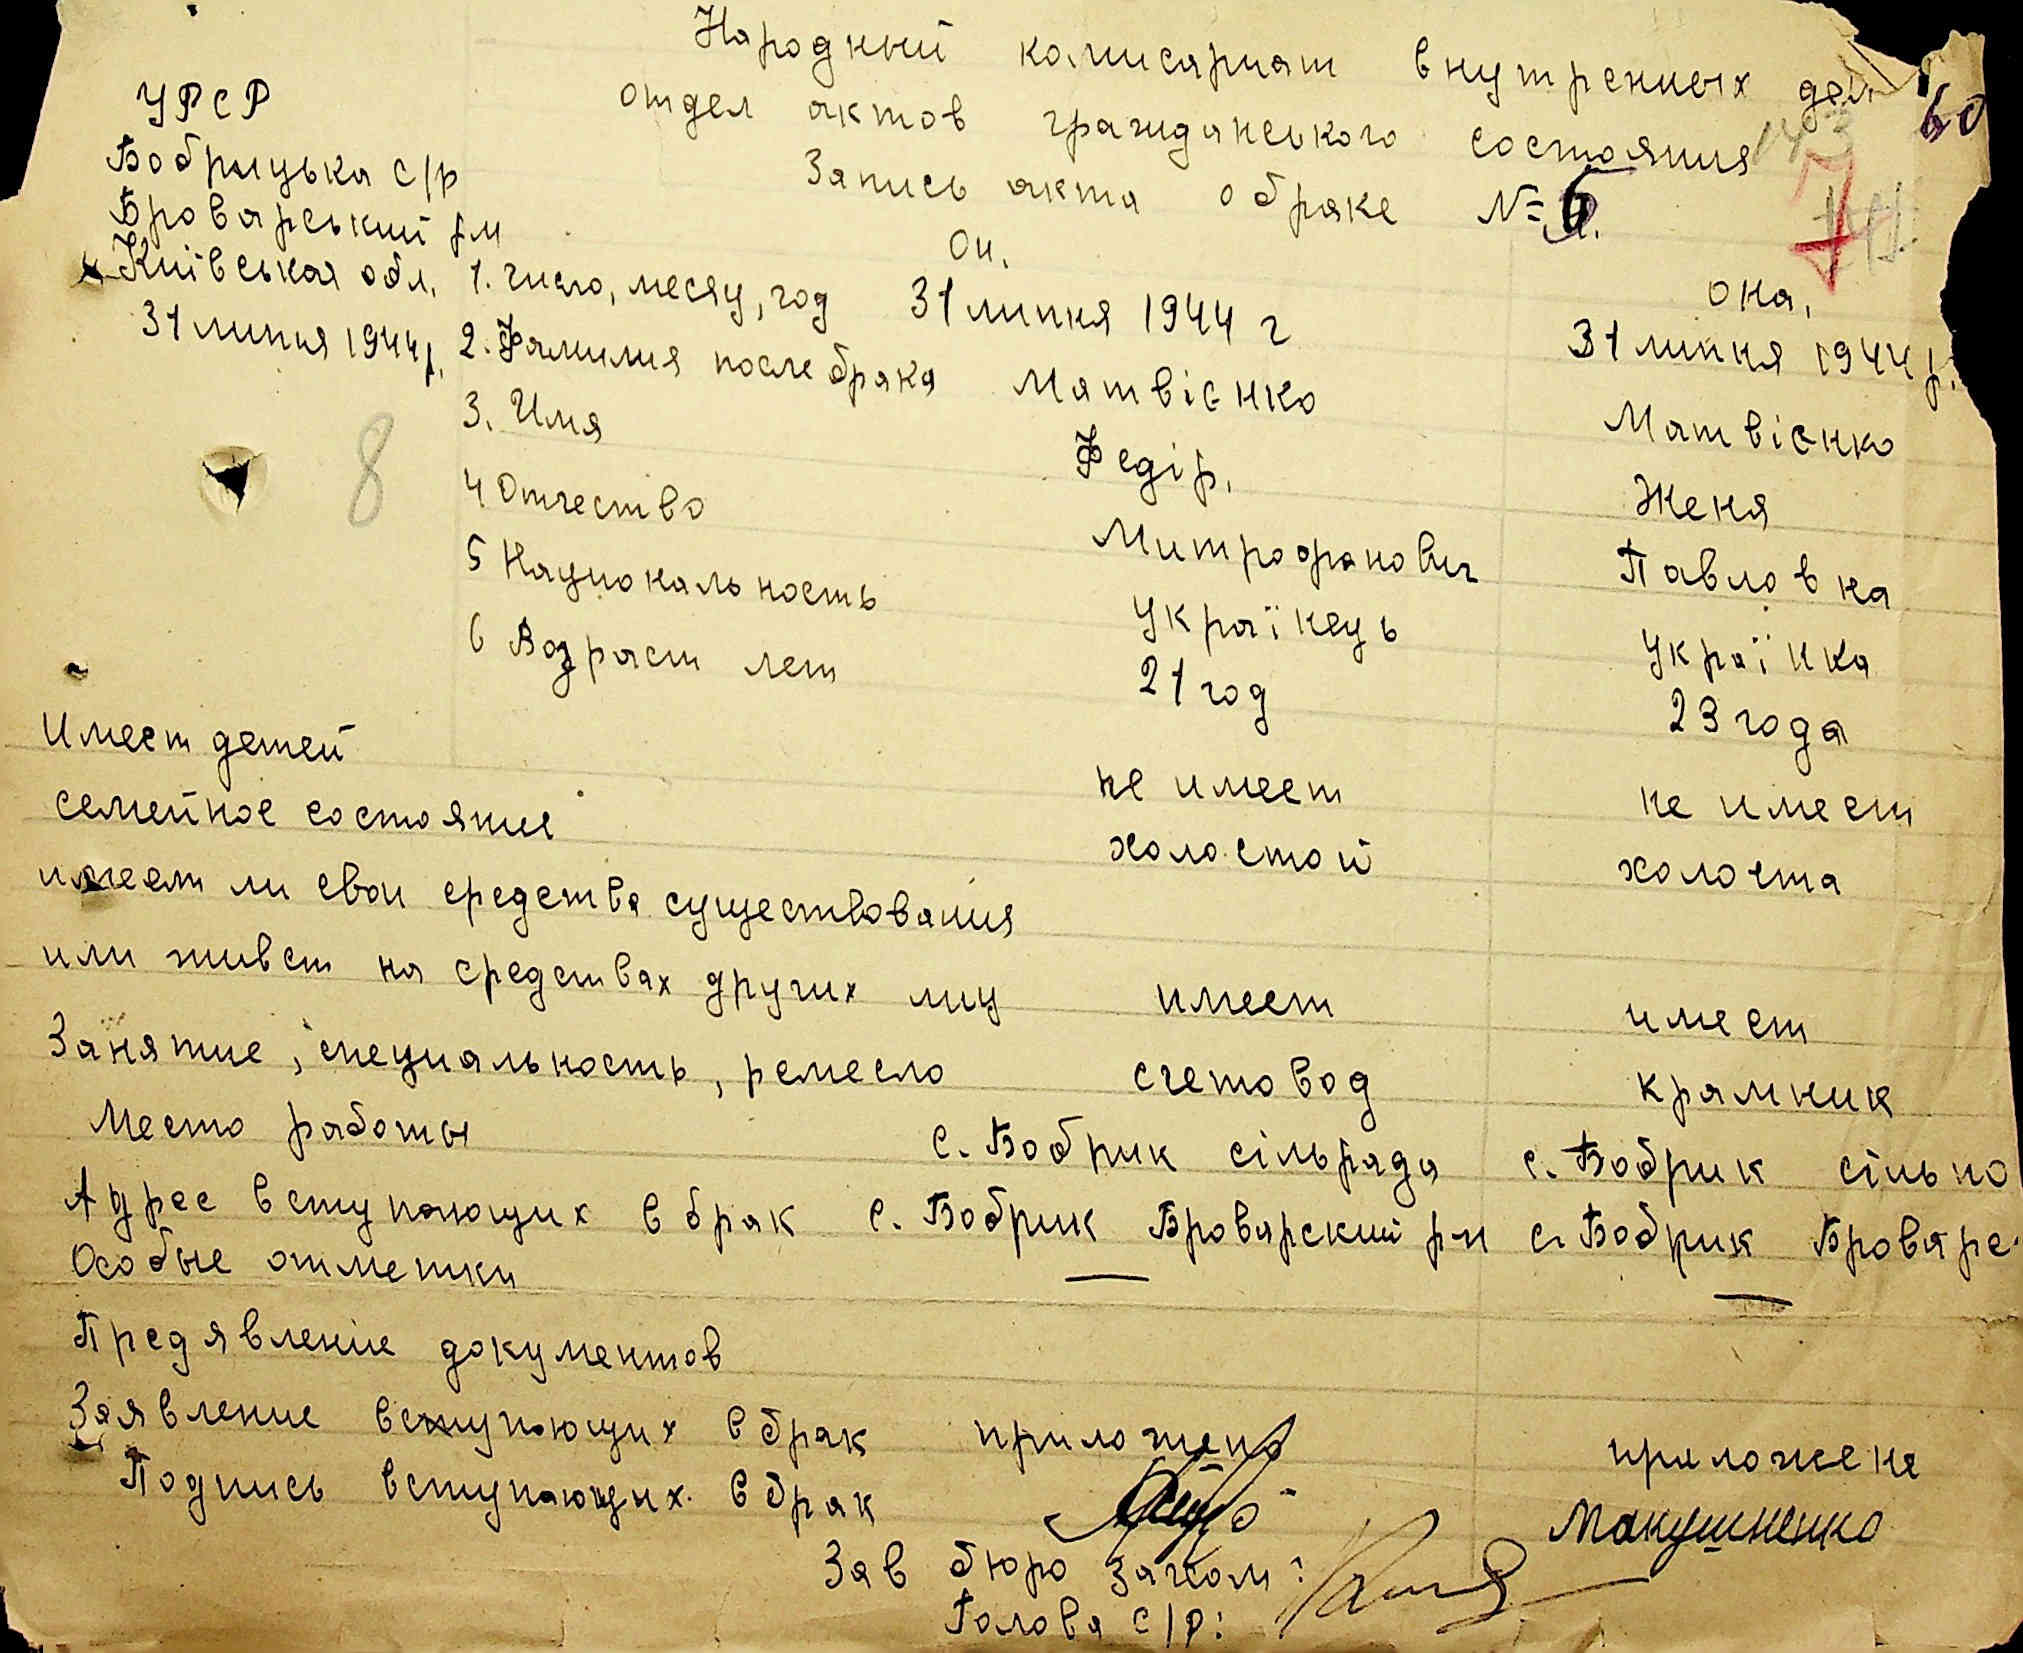 Народный комисариат внутренных дел
60
отдел актов гражданського состояния
143
Запись акта о браке №5.
УРСР
Бобрицька с/р
Броварський р-н
Київськая обл.
31 липня 1944 р.
8
Он. Она,
1. Число, месяц, год 31 липня 1944 г 31 липня 1944 р.
2. Фамилия после брака Матвієнко Матвієнко
3. Имя Федір, Женя
4 Отчество Митрофанович Павловна
5 Национальность Українець Українка
6 Возраст лет 21 год 23 года
Имеет детей не имеет не имеет
семейное состояние холостой холоста
имеет ли свои средства существования
или живет на средствах других лиц имеет имеет
Занятие, специальность, ремесло счетовод крамник
Место работы с. Бобрик сільрада с. Бобрик сільпо
Адрес вступающих в брак с. Бобрик Броварский р-н с. Бобрик Броварс
Особые отметки — —
Предявленіе документов
Заявление вступающих в брак приложено приложене
Подпись вступающих в брак Макушненко
Зав бюро Загсом:
Голова с/р: